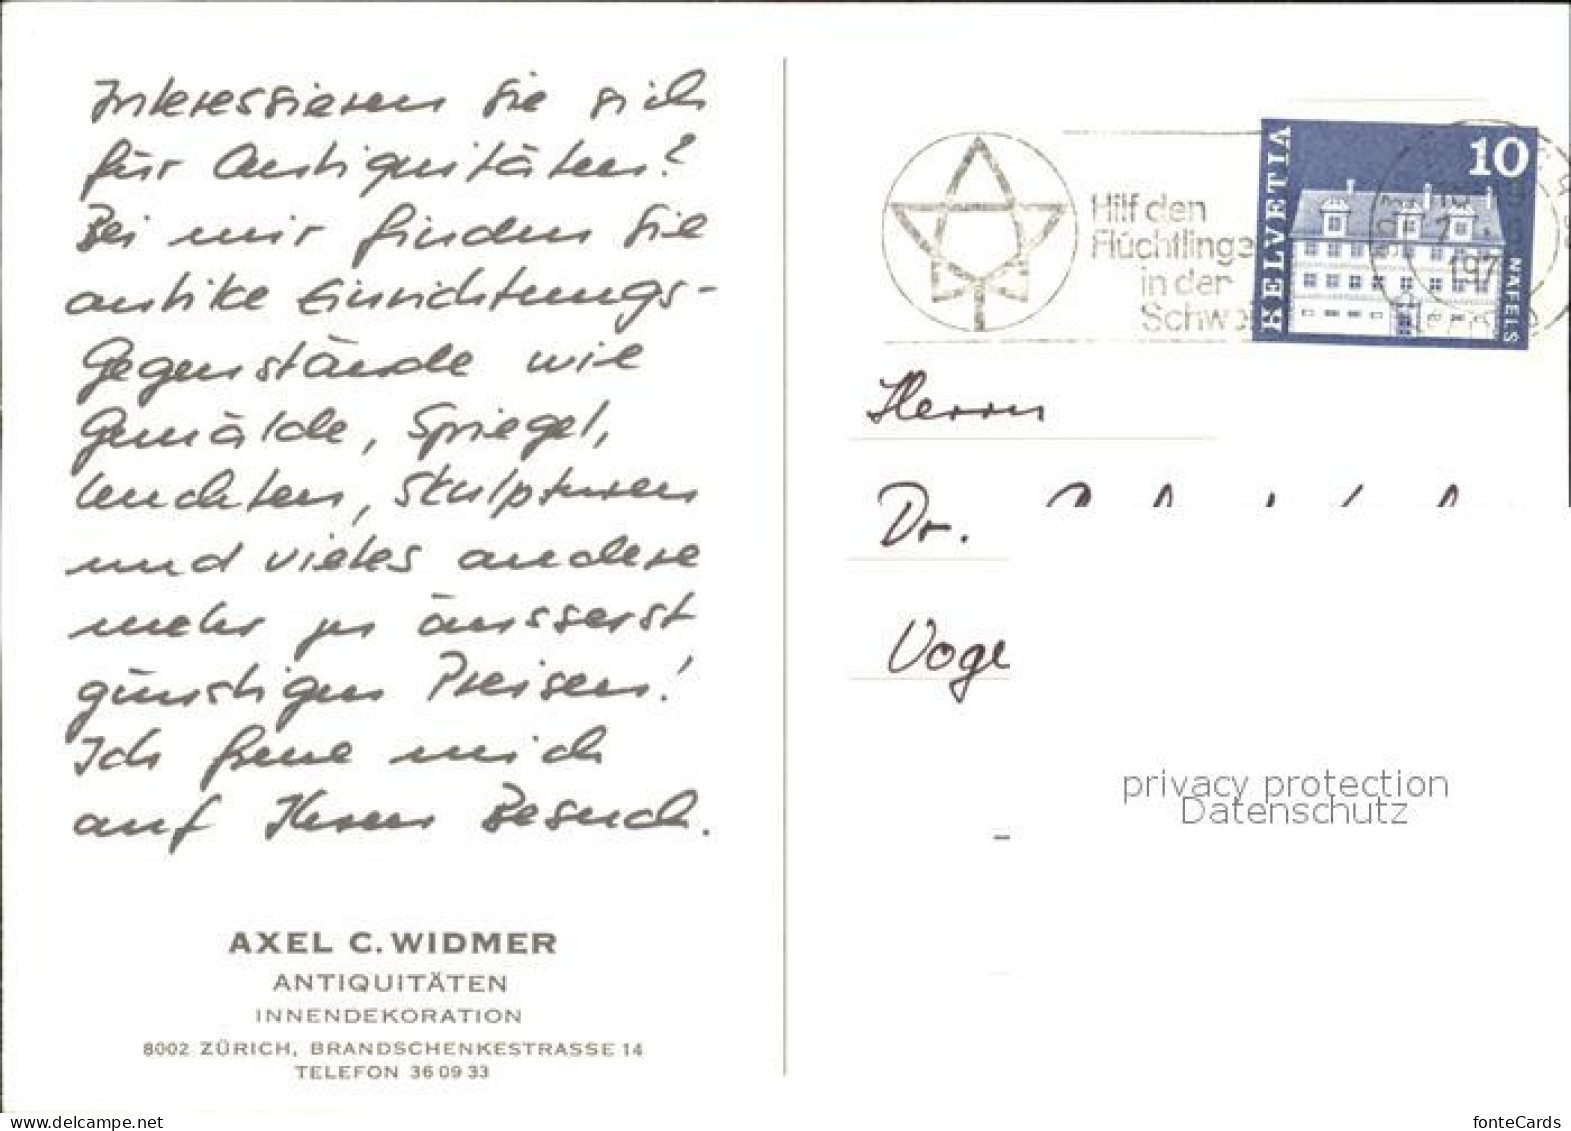 Interessieren Sie sich
für Antiquitäten?
Bei mir finden Sie
antike Einrichtungs-
Gegenstände wie
Gemälde, Spiegel,
Leuchten, Skulpturen
und vieles andere
mehr zu äusserst
günstigen Preisen!
Ich freue mich
auf Ihren Besuch.
AXEL C. WIDMER
ANTIQUITÄTEN
INNENDEKORATION
8002 ZÜRICH, BRANDSCHENKESTRASSE 14
TELEFON 36 09 33
Hilf den
Flüchtlinge
in der
Schwe
HELVETIA
10
NÄFELS
197
Herrn
Dr.
Voge
privacy protection
Datenschutz
www.delcampe.net
fonteCards